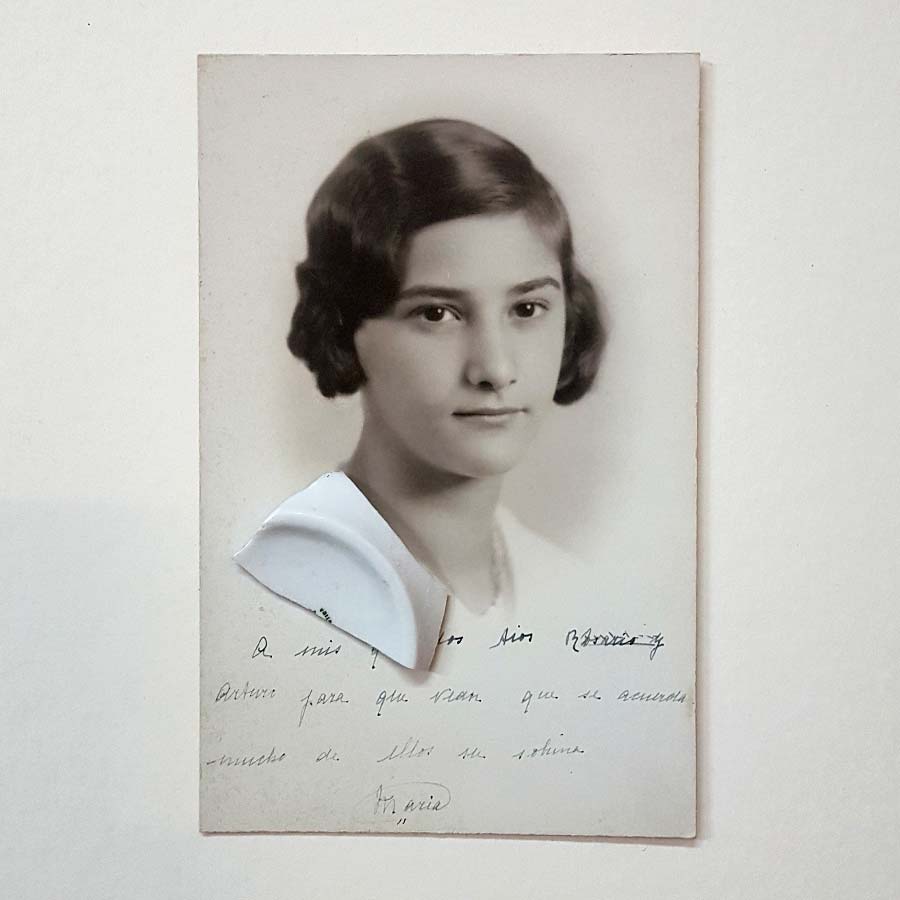 A mis q dos tios y
Arturo para que vean que se acuerda
mucho de ellos su sobina
Maria